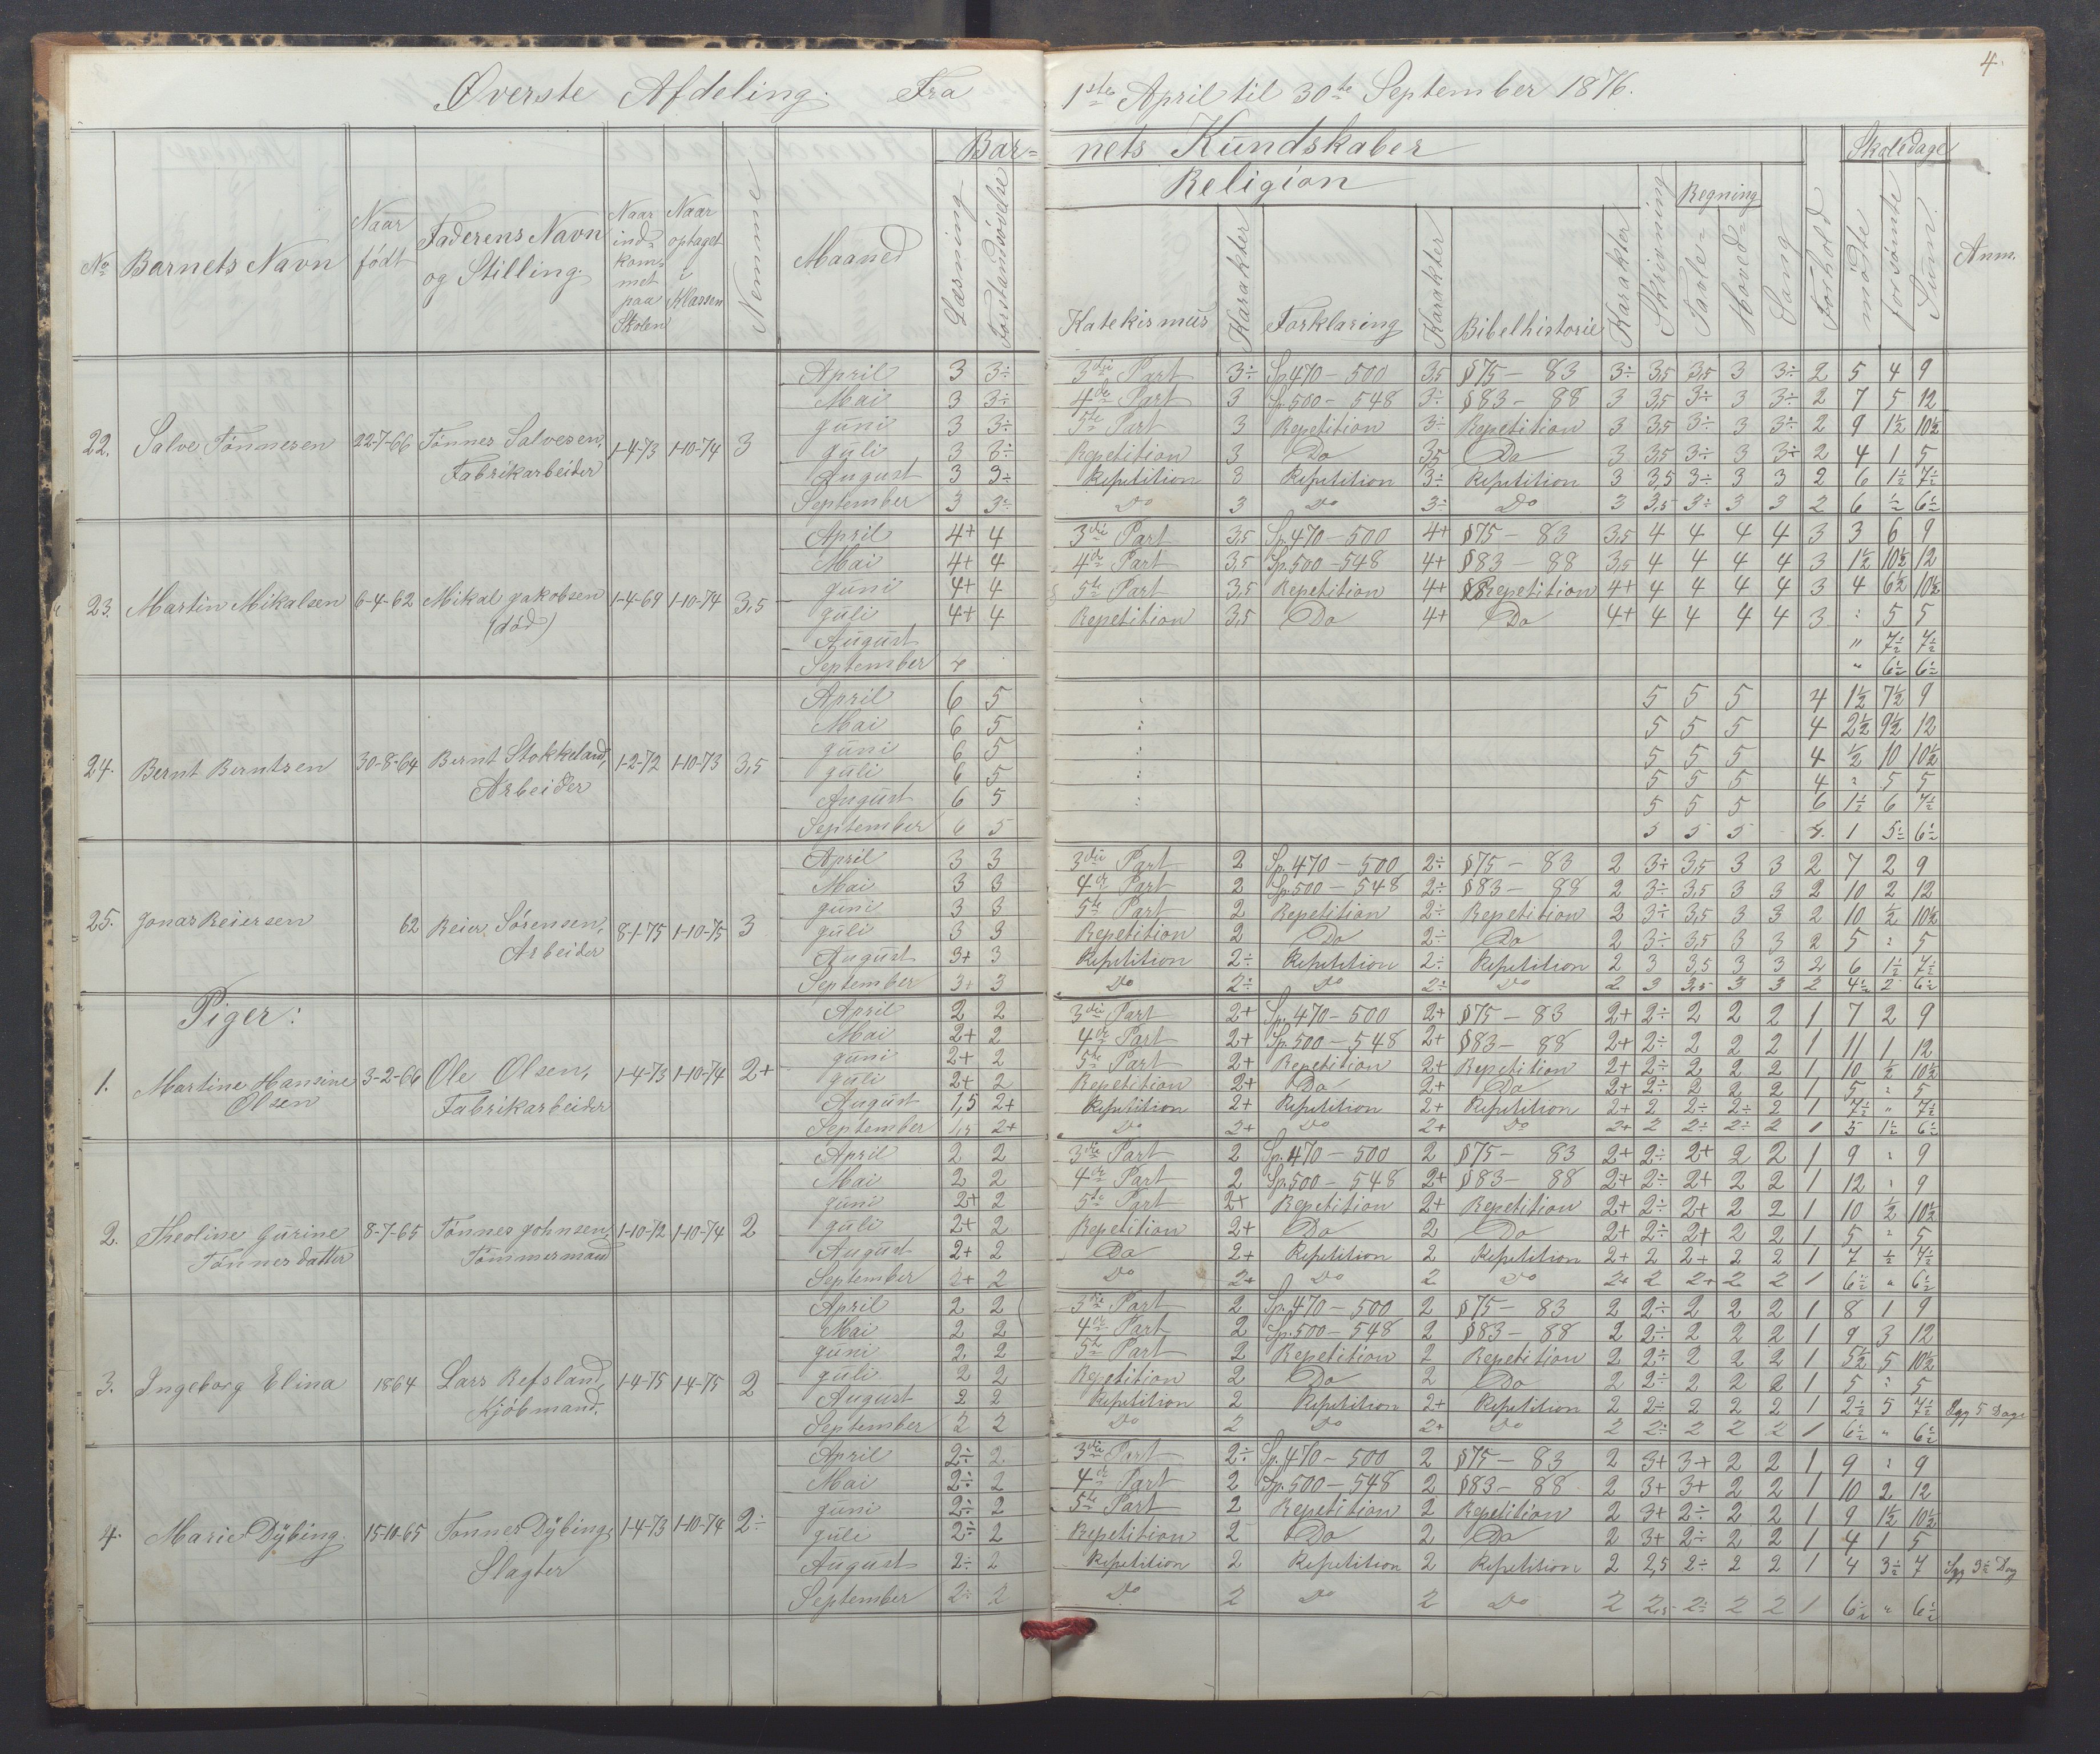 4.
Øverste Afdeling. Fra 1ste April til 30te September 1876.
Bar= nets Kundskaber
Skoledage
Religion
Regning
No Barnets Navn
Naar født
Faderens Navn og Stilling.
Naar ind= kom= met paa Skolen
Naar optaget i Klassen
Nemme
Maaned
Læsning
Forstandsøvelse
Katekismus
Karakter
Forklaring
Karakter
Bibelhistorie
Karakter
Skrivning
Tavle=
Hoved=
Sang
Forhold
mødte
forsømte
Sum.
Anm.
22. Salve Tønnesen 22-7-66 Tønnes Salvesen, Fabrikarbeider 1-4-73 1-10-74 3
April 3 3÷ 3die Part 3÷ Sp. 470 – 500 3,5 § 75 – 83 3÷ 3,5 3,5 3 3÷ 2 5 4 9
Mai 3 3÷ 4de Part 3 Sp. 500 – 548 3÷ § 83 – 88 3 3,5 3÷ 3 3÷ 2 7 5 12
Juni 3 3÷ 5te Part 3 Repetition 3÷ Repetition 3 3,5 3÷ 3 3÷ 2 9 1½ 10½
Juli 3 3÷ Repetition 3 Do 3,5 Do 3 3,5 3÷ 3 3÷ 2 4 1 5
August 3 3÷ Repetition 3 Repetition 3÷ Repetition 3 3,5 3÷ 3 3 2 6 1½ 7½
September 3 3÷ Do 3 Do 3÷ Do 3 3,5 3÷ 3 3 2 6 ½ 6½
23. Martin Mikalsen 6-4-62 Mikal Jakobsen (død) 1-4-69 1-10-74 3,5
April 4+ 4 3die Part 3,5 Sp. 470 – 500 4+ § 75 – 83 3,5 4 4 4 4 3 3 6 9
Mai 4+ 4 4de Part 3,5 Sp. 500 – 548 4+ § 83 – 88 3,5 4 4 4 4 3 1½ 10½ 12
Juni 4+ 4 5te Part 3,5 Repetition 4+ Repetition 4+ 4 4 4 4 3 4 6½ 10½
Juli 4+ 4 Repetition 3,5 Do 4+ Do 4+ 4 4 4 4 3 : 5 5
August " 7½ 7½
September " 6½ 6½
24. Bernt Berntsen 30-8-64 Bernt Stokkeland, Arbeider 1-2-72 1-10-73 3,5
April 6 5 : 5 5 5 4 1½ 7½ 9
Mai 6 5 : 5 5 5 4 2½ 9½ 12
Juni 6 5 : 5 5 5 4 ½ 10 10½
Juli 6 5 : 5 5 5 4 : 5 5
August 6 5 : 5 5 5 6 1½ 6 7½
September 6 5 5 5 5 1 5½ 6½
25. Jonas Reiersen 62 Reier Sørensen, Arbeider 8-1-75 1-10-75 3
April 3 3 3die Part 2 Sp. 470 – 500 2÷ § 75 – 83 2 3÷ 3,5 3 3 2 7 2 9
Mai 3 3 4de Part 2 Sp. 500 – 548 2÷ § 83 – 88 2 3÷ 3,5 3 3 2 10 2 12
Juni 3 3 5te Part 2 Repetition 2÷ Repetition 2 3÷ 3,5 3 3 2 10 ½ 10½
Juli 3 3 Repetition 2 Do 2÷ Do 2 3÷ 3,5 3 3 2 5 : 5
August 3+ 3 Repetition 2÷ Repetition 2÷ Repetition 2 3 3,5 3 3 2 6 1½ 7½
September 3+ 3 Do 2÷ Do 2÷ Do 2 3 3,5 3 3 2 4½ 2 6½
Piger:
1. Martine Hansine Olsen 3-2-66 Ole Olsen, Fabrikarbeider 1-4-73 1-10-74 2+
April 2 2 3die Part 2+ Sp. 470 – 500 2+ § 75 – 83 2+ 2÷ 2 2 2 1 7 2 9
Mai 2+ 2 4de Part 2+ Sp. 500 – 548 2+ § 83 – 88 2+ 2÷ 2 2 2 1 11 1 12
Juni 2+ 2 5te Part 2+ Repetition 2+ Repetition 2+ 2÷ 2 2 2 1 10 ½ 10½
Juli 2+ 2 Repetition 2+ Do 2+ Do 2+ 2÷ 2 2 2 1 5 : 5
August 1,5 2+ Repetition 2+ Repetition 2+ Repetition 2+ 2 2÷ 2÷ 2 1 7½ " 7½
September 1,5 2+ Do 2+ Do 2+ Do 2+ 2 2÷ 2÷ 2 1 5 1½ 6½
2. Theoline Gurine Tønnesdatter 8-7-65 Tønnes Johnsen, Tømmermand 1-10-72 1-10-74 2
April 2 2 3die Part 2 Sp. 470 – 500 2 § 75 – 83 2+ 2÷ 2+ 2 2 1 9 : 9
Mai 2 2 4de Part 2 Sp. 500 – 548 2+ § 83 – 88 2+ 2÷ 2+ 2 2 1 12 : 9
Juni 2+ 2 5te Part 2+ Repetition 2+ Repetition 2+ 2÷ 2+ 2 2 1 10 ½ 10½
Juli 2+ 2 Repetition 2+ Do 2 Do 2+ 2÷ 2+ 2 2 1 5 : 5
August 2+ 2 Do 2+ Repetition 2 Repetition 2+ 2 2+ 2 2 1 7 ½ 7½
September 2+ 2 Do 2+ Do 2 Do 2+ 2 2+ 2 2 1 6½ " 6½
3. Ingeborg Elina 1864 Lars Refsland, Kjøbmand. 1-4-75 1-4-75 2
April 2 2 3die Part 2 Sp. 470 – 500 2 § 75 – 83 2 2÷ 2 2 2 1 8 1 9
Mai 2 2 4de Part 2 Sp. 500 – 548 2 § 83 – 88 2 2÷ 2 2 2 1 9 3 12
Juni 2 2 5te Part 2 Repetition 2 Repetition 2 2÷ 2 2 2 1 5½ 5 10½
Juli 2 2 Repetition 2 Do 2 Do 2 2÷ 2 2 2 1 5 : 5
August 2 2 Repetition 2 Repetition 2+ Repetition 2 2÷ 2 2 2 1 2½ 5 7½ Syg 5 Dage
September 2 2 Do 2 Do 2+ Do 2 2÷ 2 2 2 1 6½ " 6½
4. Marie Dÿbing. 15-10-65 Tønnes Dÿbing, Slagter 1-4-73 1-10-74 2÷
April 2÷ 2 3die Part 2÷ Sp. 470 – 500 2 § 75 – 83 2 3+ 3+ 2 2 1 9 : 9
Mai 2÷ 2 4de Part 2 Sp. 500 – 548 2 § 83 – 88 2 3+ 3+ 2 2 1 10 2 12
Juni 2÷ 2 5te Part 2 Repetition 2 Repetition 2 3+ 2÷ 2 2 1 9 1½ 10½
Juli 2÷ 2 Repetition 2 Do 2 Do 2 3+ 2÷ 2 2 1 4 1 5
August 2÷ 2 Repetition 2 Repetition 2 Repetition 2 2,5 2÷ 2 2 1 4 3½ 7 Syg 3½ Dag
September 2÷ 2 Do 2 Do 2 Do 2 2,5 2÷ 2 2 1 6½ " 6½